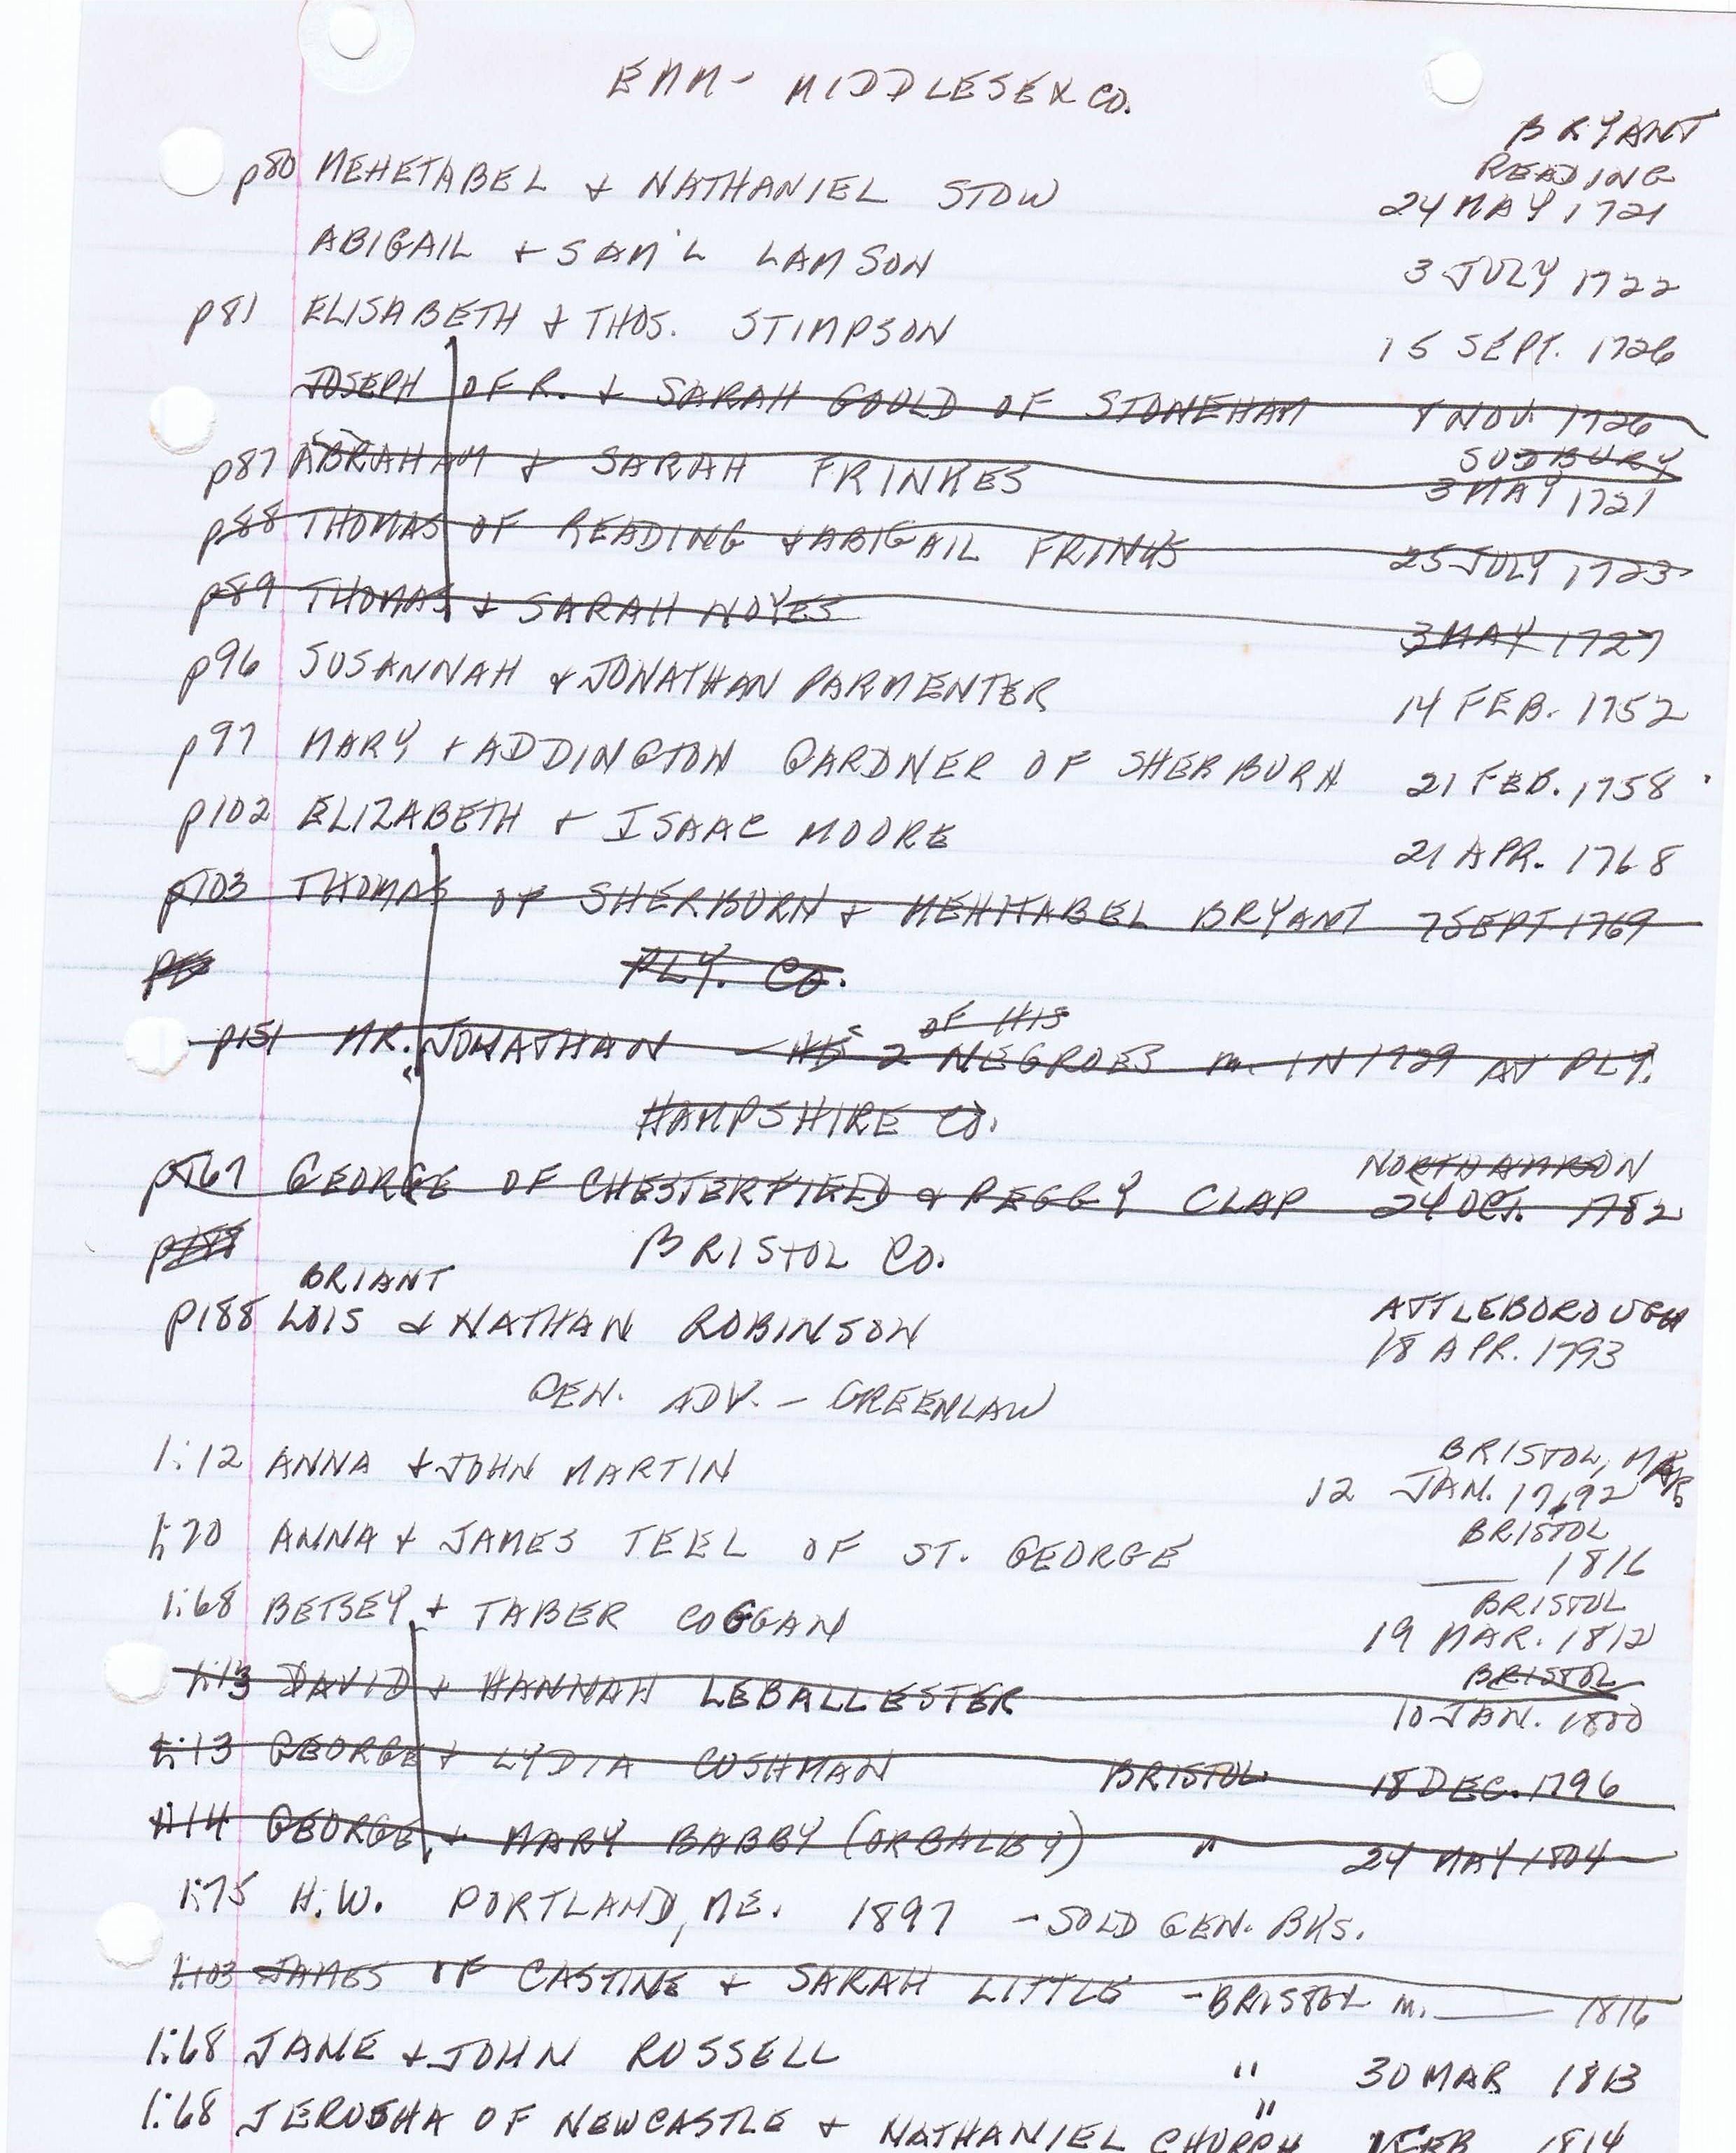 EMM - MIDDLESEX CO.
BRYANT
READING
p80 MEHETABEL & NATHANIEL STOW 24 MAY 1721
ABIGAIL & SAM'L LAMSON 3 JULY 1722
p81 ELISABETH & THOS. STIMPSON 15 SEPT. 1726
JOSEPH OF R. & SARAH GOULD OF STONEHAM 1 NOV. 1726
SUDBURY
p87 ABRAHAM & SARAH FRINKES 3 MAY 1721
p88 THOMAS OF READING & ABIGAIL FRINKS 25 JULY 1723
p89 THOMAS & SARAH NOYES 3 MAY 1727
p96 SUSANNAH & JONATHAN PARMENTER 14 FEB. 1752
p97 MARY & ADDINGTON GARDNER OF SHERBURN 21 FEB. 1758
p102 ELIZABETH & ISAAC MOORE 21 APR. 1768
p103 THOMAS OF SHERBURN & MEHITABEL BRYANT 7 SEPT. 1769
PLY. CO.
OF HIS
p151 MR. JONATHAN - 2 NEGROES m. IN 1729 AT PLY.
HAMPSHIRE CO.
NORTHAMPTON
p167 GEORGE OF CHESTERFIELD & PEGGY CLAP 24 OCT. 1782
BRISTOL CO.
BRIANT
p188 LOIS & NATHAN ROBINSON ATTLEBOROUGH
18 APR. 1793
GEN. ADV. - GREENLAW
BRISTOL,
1:12 ANNA & JOHN MARTIN 12 JAN. 1792
BRISTOL
1:70 ANNA & JAMES TEEL OF ST. GEORGE ___ 1816
BRISTOL
1:68 BETSEY & TABER COGGAN 19 MAR. 1812
BRISTOL
1:13 DAVID & HANNAH LEBALLESTER 10 JAN. 1800
1:13 GEORGE & LYDIA CUSHMAN BRISTOL 18 DEC. 1796
1:14 GEORGE & MARY BABBY (OR BALBY) " 24 MAY 1804
1:75 H.W. PORTLAND, ME. 1897 - SOLD GEN. BKS.
1:103 JAMES OF CASTINE & SARAH LITTLE - BRISTOL m. ___ 1816
1:68 JANE & JOHN RUSSELL " 30 MAR 1813
1:68 JERUSHA OF NEWCASTLE & NATHANIEL CHURCH " FEB 1814